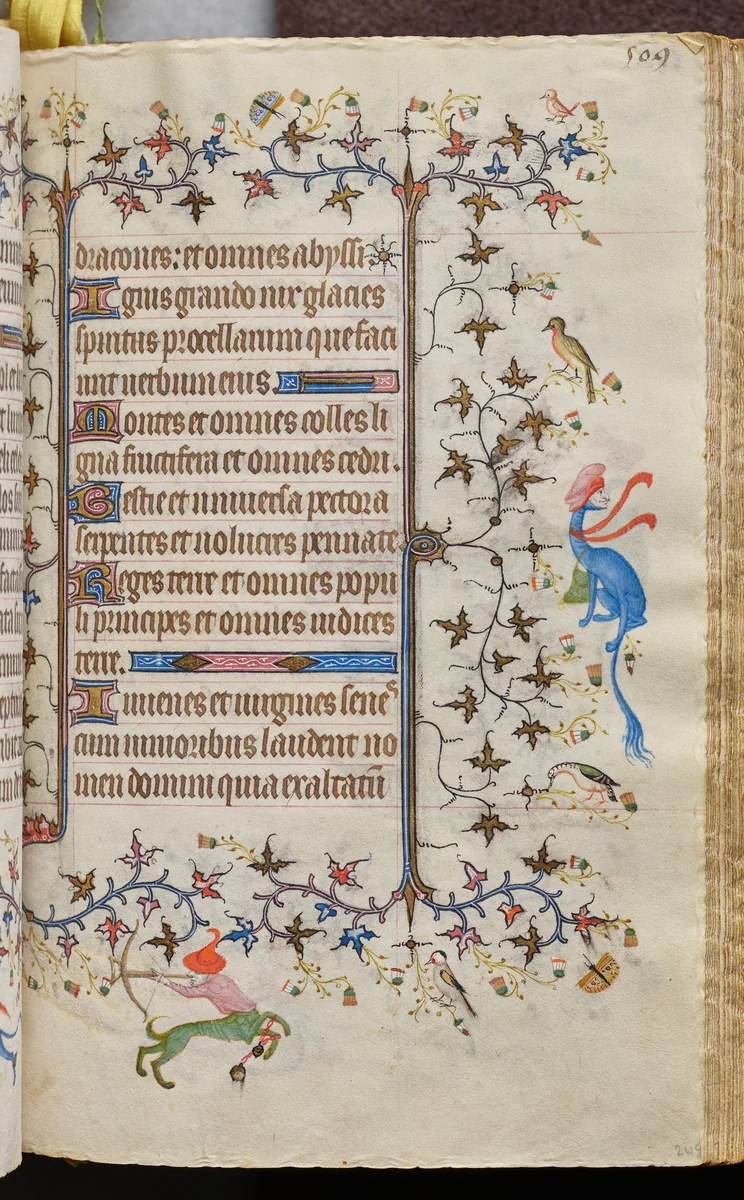 509
dracones: et omnes abyssi
Ignis grando nix glacies
spiritus procellarum que faci
unt verbum eius
Montes et omnes colles li
gna fructifera et omnes cedri.
Bestie et universa peccora
serpentes et volucres pennate
Reges terre et omnes popu
li principes et omnes iudices
terre.
Iuvenes et virgines senes
cum iunioribus laudent no
men domini quia exaltatū
249